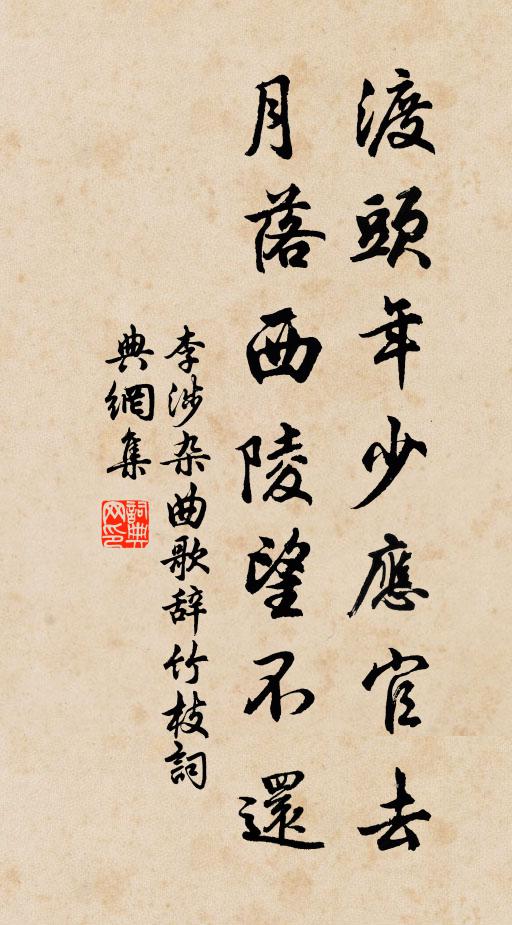 渡頭年少應官去
月落西陵望不還
李涉杂曲歌辞竹枝詞
典網集
詞典网印